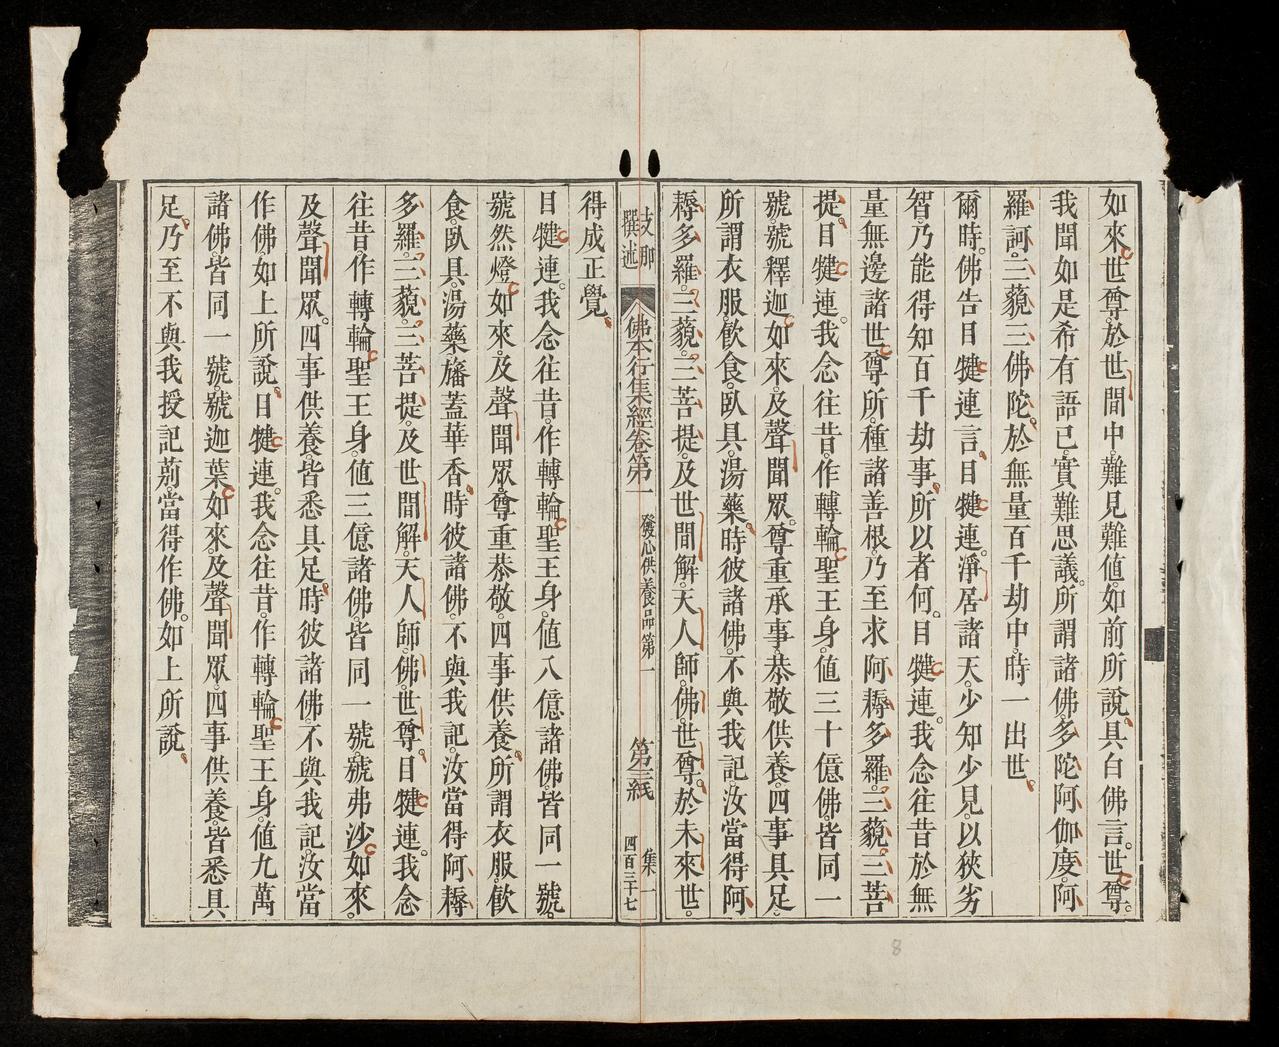 如來世尊。於世間中。難見難値。如前所說。具白佛言。世尊。
我聞如是希有語已。實難思議。所謂諸佛。多陀阿伽度。阿
羅訶。三藐三佛陀。於無量百千劫中。時一出世。
爾時。佛告目犍連言。目犍連。淨居諸天。少知少見。以狹劣
智。乃能得知百千劫事。所以者何。目犍連。我念往昔於無
量無邊諸世尊所。種諸善根。乃至求阿耨多羅。三藐。三菩
提。目犍連。我念往昔。作轉輪聖王身。値三十億佛。皆同一
號。號釋迦如來。及聲聞眾。尊重承事。恭敬供養。四事具足。
所謂衣服。飮食。臥具。湯藥。時彼諸佛。不與我記。汝當得阿
耨多羅。三藐。三菩提。及世間解。天人師。佛。世尊。於未來世。
支那
撰述
佛本行集經卷第一 發心供養品第一 第三紙 集一
四百三十七
得成正覺。
目犍連。我念往昔。作轉輪聖王身。値八億諸佛。皆同一號。
號然燈如來。及聲聞眾。尊重恭敬。四事供養。所謂衣服。飮
食。臥具。湯藥旛蓋華香。時彼諸佛。不與我記。汝當得阿耨
多羅。三藐。三菩提。及世間解。天人師。佛。世尊。目犍連。我念
往昔。作轉輪聖王身。値三億諸佛。皆同一號。號弗沙如來。
及聲聞眾。四事供養。皆悉具足。時彼諸佛。不與我記。汝當
作佛。如上所說。目犍連。我念往昔。作轉輪聖王身。値九萬
諸佛。皆同一號。號迦葉如來。及聲聞眾。四事供養。皆悉具
足。乃至不與我授記莂。當得作佛。如上所說。
8